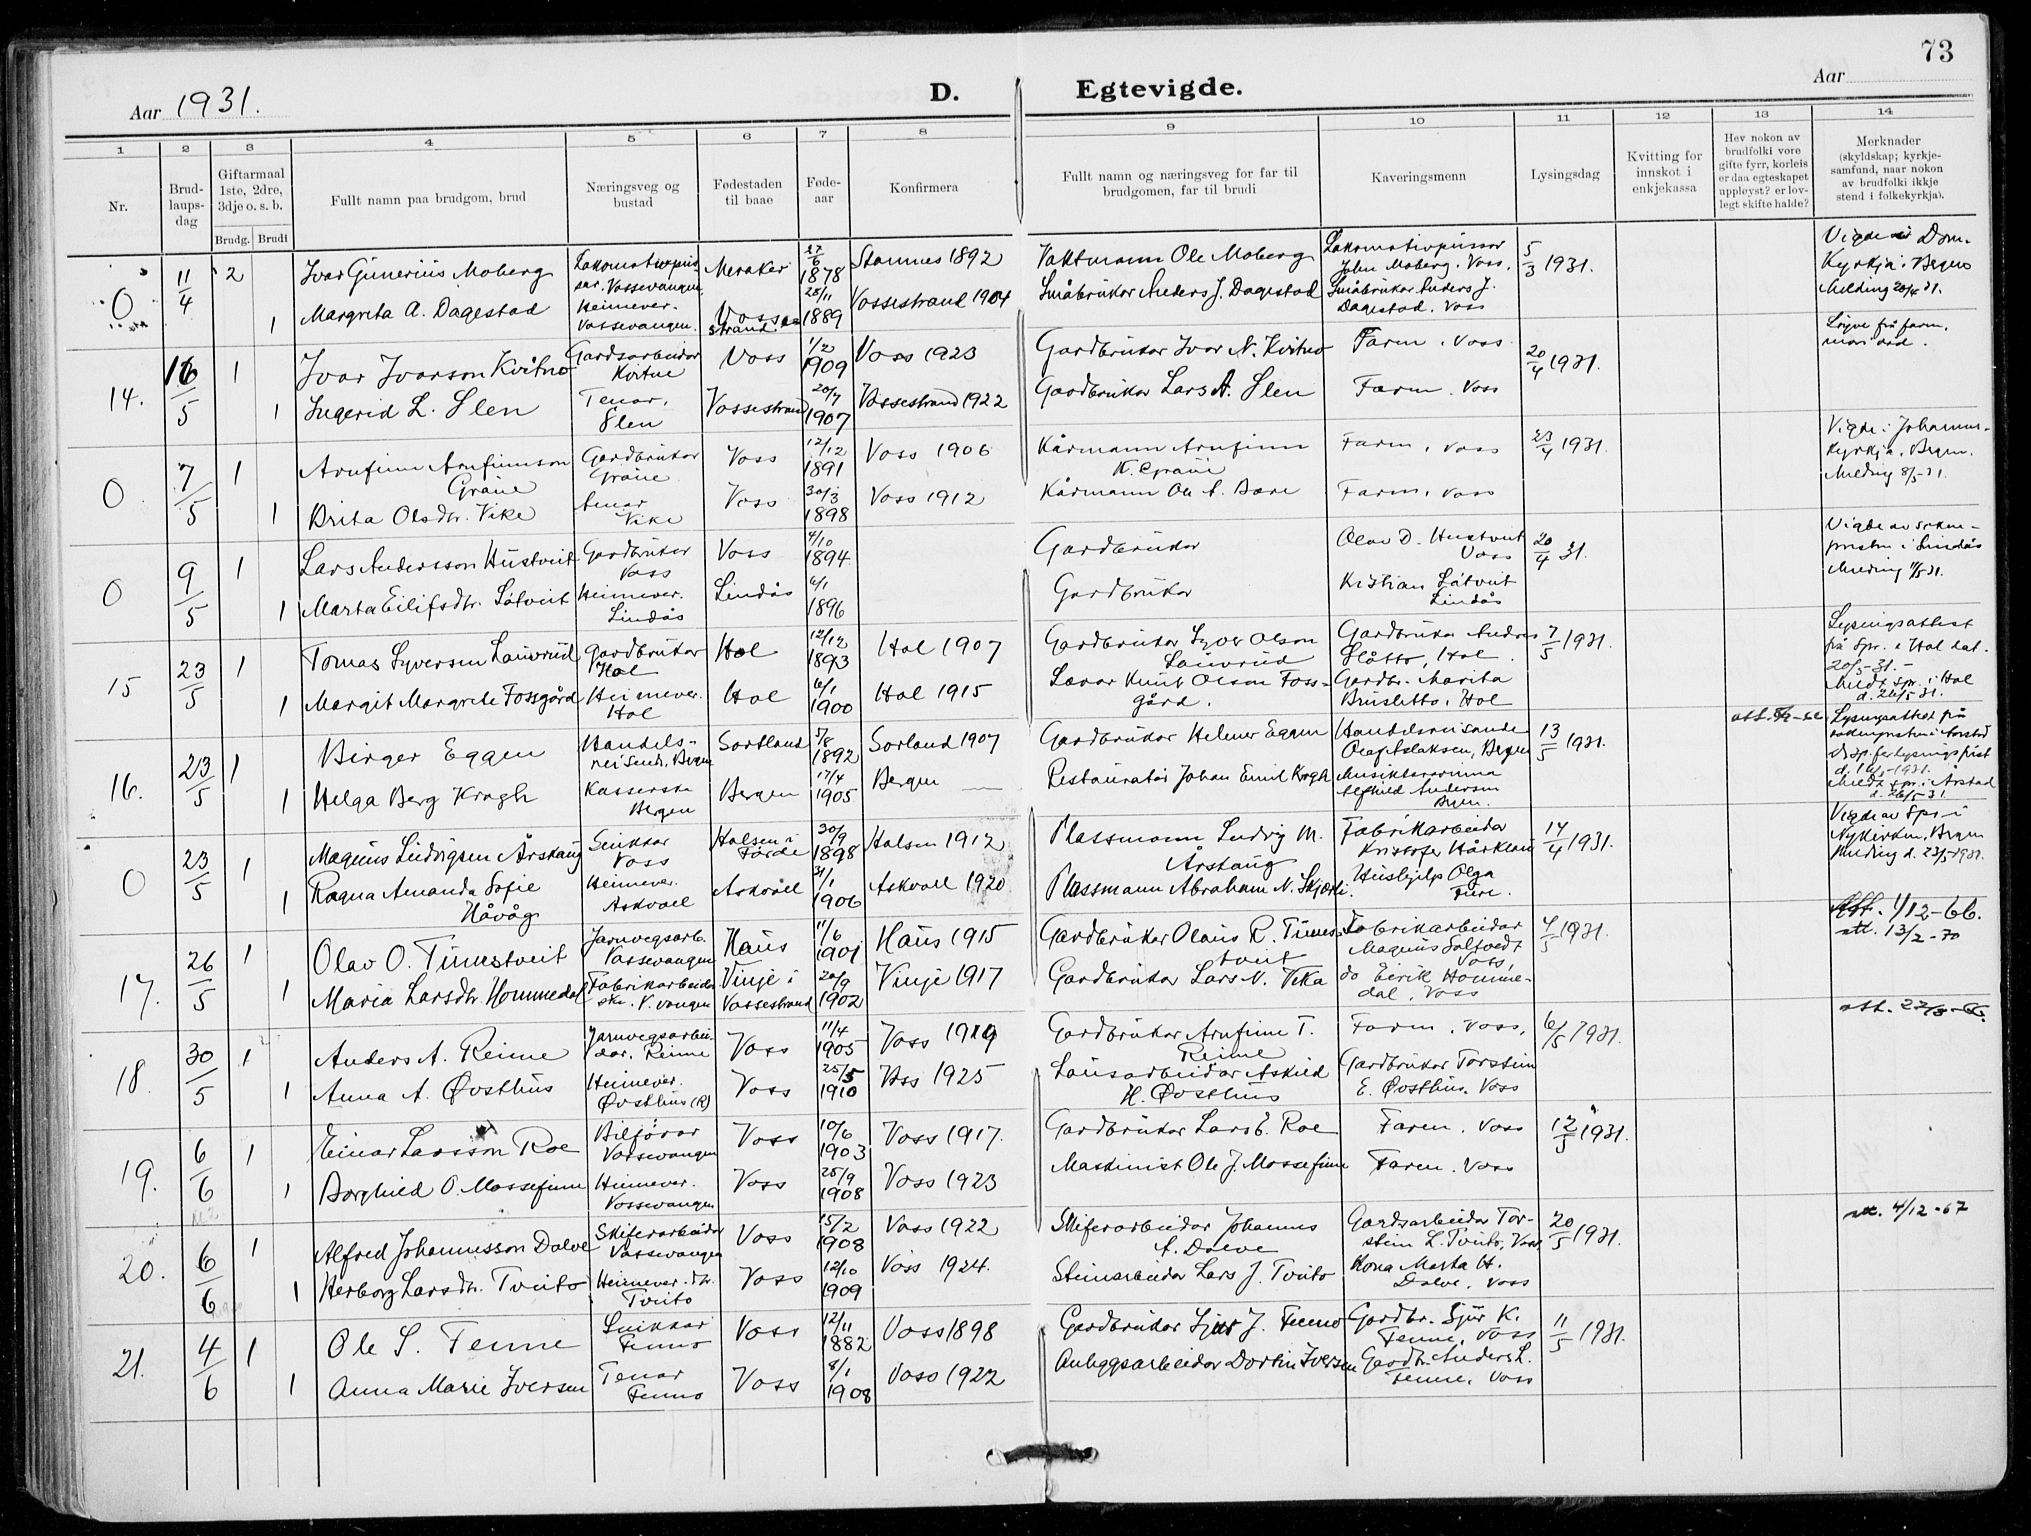 73
Aar 1931.
D. Egtevigde.
Aar
1 2 3 4 5 6 7 8 9 10 11 12 13 14
Nr.
Brud-
laups-
dag
Giftarmaal
1ste, 2dre,
3dje o. s. b.
Brudg. Brudi
Fullt namn paa brudgom, brud
Næringsveg og
bustad
Fødestaden
til baae
Føde-
aar
Konfirmera
Fullt namn og næringsveg for far til
brudgomen, far til brudi
Kaveringsmenn
Lysingsdag
Kvitting for
innskot i
enkjekassa
Hev nokon av
brudfolki vore
gifte fyrr, korleis
er daa egteskapet
uppløyst? er lov-
legt skifte halde?
Merknader
(skyldskap; kyrkje-
samfund, naar nokon
av brudfolki ikkje
stend i folkekyrkja).
0 11/4 2 Ivar Gunerius Moberg
Vossevangen
Meraker 27/6 1878 Stamnes 1892
Vaktmann Ole Moberg
Lokomotivpussar
John Moberg. Voss. 5/3 1931.
Vigde i Dom-
kyrkja i Bergen
Melding 20/4 31.
1 Margreta A. Dagestad
Heimever.
Vossevangen.
Vosse
strand 28/11 1889 Vossestrand 1904
Småbrukar Anders J. Dagestad
Småbrukar Anders J.
Dagestad. Voss
14. 16/5 1 Ivar Ivarson Kvitno
Gardsarbeidar
Kvitne
Voss 1/2 1909 Voss 1923
Gardbrukar Ivar N. Kvitno
Faren, Voss 20/4 1931.
1 Ingerid L. Slen
Tenar,
Slen
Vossestrand 20/7 1907 Vossestrand 1922
Gardbrukar Lars A. Slen
Faren. Voss
0 7/5 1 Arnfinn Arnfinnson
Gråue
Gardbrukar
Gråue
Voss 12/12 1891 Voss 1906
Kårmann Arnfinn
K. Gråue
Faren, Voss 23/4 1931.
Vigde i Johannes-
kyrkja, Bergen.
Melding 8/5-31.
1 Brita Olsdtr. Vike
tenar
Vike
Voss 30/3 1898 Voss 1912
Kårmann Ole A. Bære
Faren, Voss
0 9/5 1 Lars Andersson Hustveit
Gardbrukar
Voss
Voss 4/10 1894
Gardbrukar
Olav D. Hustveit
Voss 20/4 31.
Vigde av sokne-
presten i Lindås
Melding 11/5 31.
1 Marta Eilifsdtr. Låtveit
Heimever.
Lindås
Lindås 6/1 1896
Gardbrukar
Kristian Låtveit
Lindås
15 23/5 1 Tomas Syversen Lauvrud
Gardbrukar
Hol
Hol 12/12 1893 Hol 1907
Gardbrukar Syver Olson
Lauvrud
Gardbrukar Andres
Slåtto, Hol. 7/5 1931.
Lysingsattest
frå Spr. i Hol dat.
20/5-31.-
Meldt Spr. i Hol
d. 26/5 31.
1 Margit Margrete Fossgård
Heimever.
Hol
Hol 6/1 1900 Hol 1915
Lærar Knut Olson Foss-
gård.
Gardbr. Marita
Brusletto, Hol
16. 23/5 1 Birger Eggen
Handels-
reisende, Bergen
Sortland 5/8 1892 Sorland 1907
Gardbrukar Helmer Eggen
Handelsreisande
Olaf Aslaksen, Bergen 13/5 1931.
Lysingsattest frå
d. 16/5-1931.
Meldt spr. i Årstad
d. 26/5-31.
1 Helga Berg Krogh
Kasserske
Bergen
Bergen 17/4 1905 Bergen —
Restauratør Johan Emil Krogh
Musiklærarinna
Alfhild Andersen
Bergen.
0 23/5 1 Magnus Ludvigsen Årskaug
Snikkar
Voss
Holsen i
Førde 30/9 1898 Holsen 1912
Plassmann Ludvig M.
Årskaug
Fabrikarbeidar
Kristofer Hårklau 14/4 1931.
Vigde av Spr. i
Nykirken, Bergen
Melding d. 23/5-1931.
1 Ragna Amanda Sofie
Håvåg
Heimever.
Askvoll
Askvoll 31/1 1906 Askvoll 1920
Plassmann Abraham N. Skjærli.
Hushjelp Olga
Fure.
17. 26/5 1 Olav O. Tunestveit
Jarnvegsarb.
Vossevangen
Haus 11/6 1901 Haus 1915
Gardbrukar Olaus R. Tunes-
tveit
Fabrikarbeidar
Magnus Saltvedt
Voss. 4/5 1931.
Att. 1/12-66.
att. 13/2-70
1 Maria Larsdtr. Hommedal
Fabrikarbeidar
ske. V. vangen
Vinje i
Vossestrand 20/9 1902 Vinje 1917
Gardbrukar Lars N. Vika
do Eirik Homme-
dal, Voss
18. 30/5 1 Anders A. Reime
Jarnvegsarbei-
dar. Reime
Voss 11/4 1905 Voss 1919
Gardbrukar Arnfinn T.
Reime
Faren, Voss, 6/5 1931.
1 Anna A. Øvsthus
Heimever.
Øvsthus (R)
Voss 25/5 1910 Voss 1925
Lausarbeidar Askild
H. Øvsthus
Gardbrukar Torstein
E. Øvsthus. Voss
19. 6/6 1 Einar Larsson Roe
Bilførar
Vossevangen
Voss 10/6 1903 Voss 1917.
Gardbrukar Lars E. Roe
Faren, Voss 12/5 1931.
1 Borghild O. Mossefinn
Heimever.
Vossevangen
Voss 25/9 1908 Voss 1923
Maskinist Ole J. Mossefinn
Faren. Voss
20. 6/6 1 Alfred Johannesson Dolve
Skiferarbeidar
Vossevangen
Voss 15/2 1908 Voss 1922
Skiferarbeidar Johannes
A. Dolve
Gardsarbeidar Tor-
stein L. Tvito, Voss 20/5 1931.
att. 4/12-67
1 Herborg Larsdtr. Tvito
Heimever. dtr.
Tvito
Voss 12/10 1909 Voss 1924.
Steinarbeidar Lars J. Tvito
Kona Marta H.
Dolve, Voss
21. 4/6 1 Ole S. Fenne
Snikkar
Fenno
Voss 12/11 1882 Voss 1898
Gardbrukar Sjur J. Fenno
Gardbr. Sjur K.
Fenne, Voss 11/5 1931.
1 Anna Marie Iversen
Tenar
Fenno
Voss 8/1 1908 Voss 1922
Anleggsarbeidar Dortin Iversen
Gardbr. Anders L.
Fenne, Voss